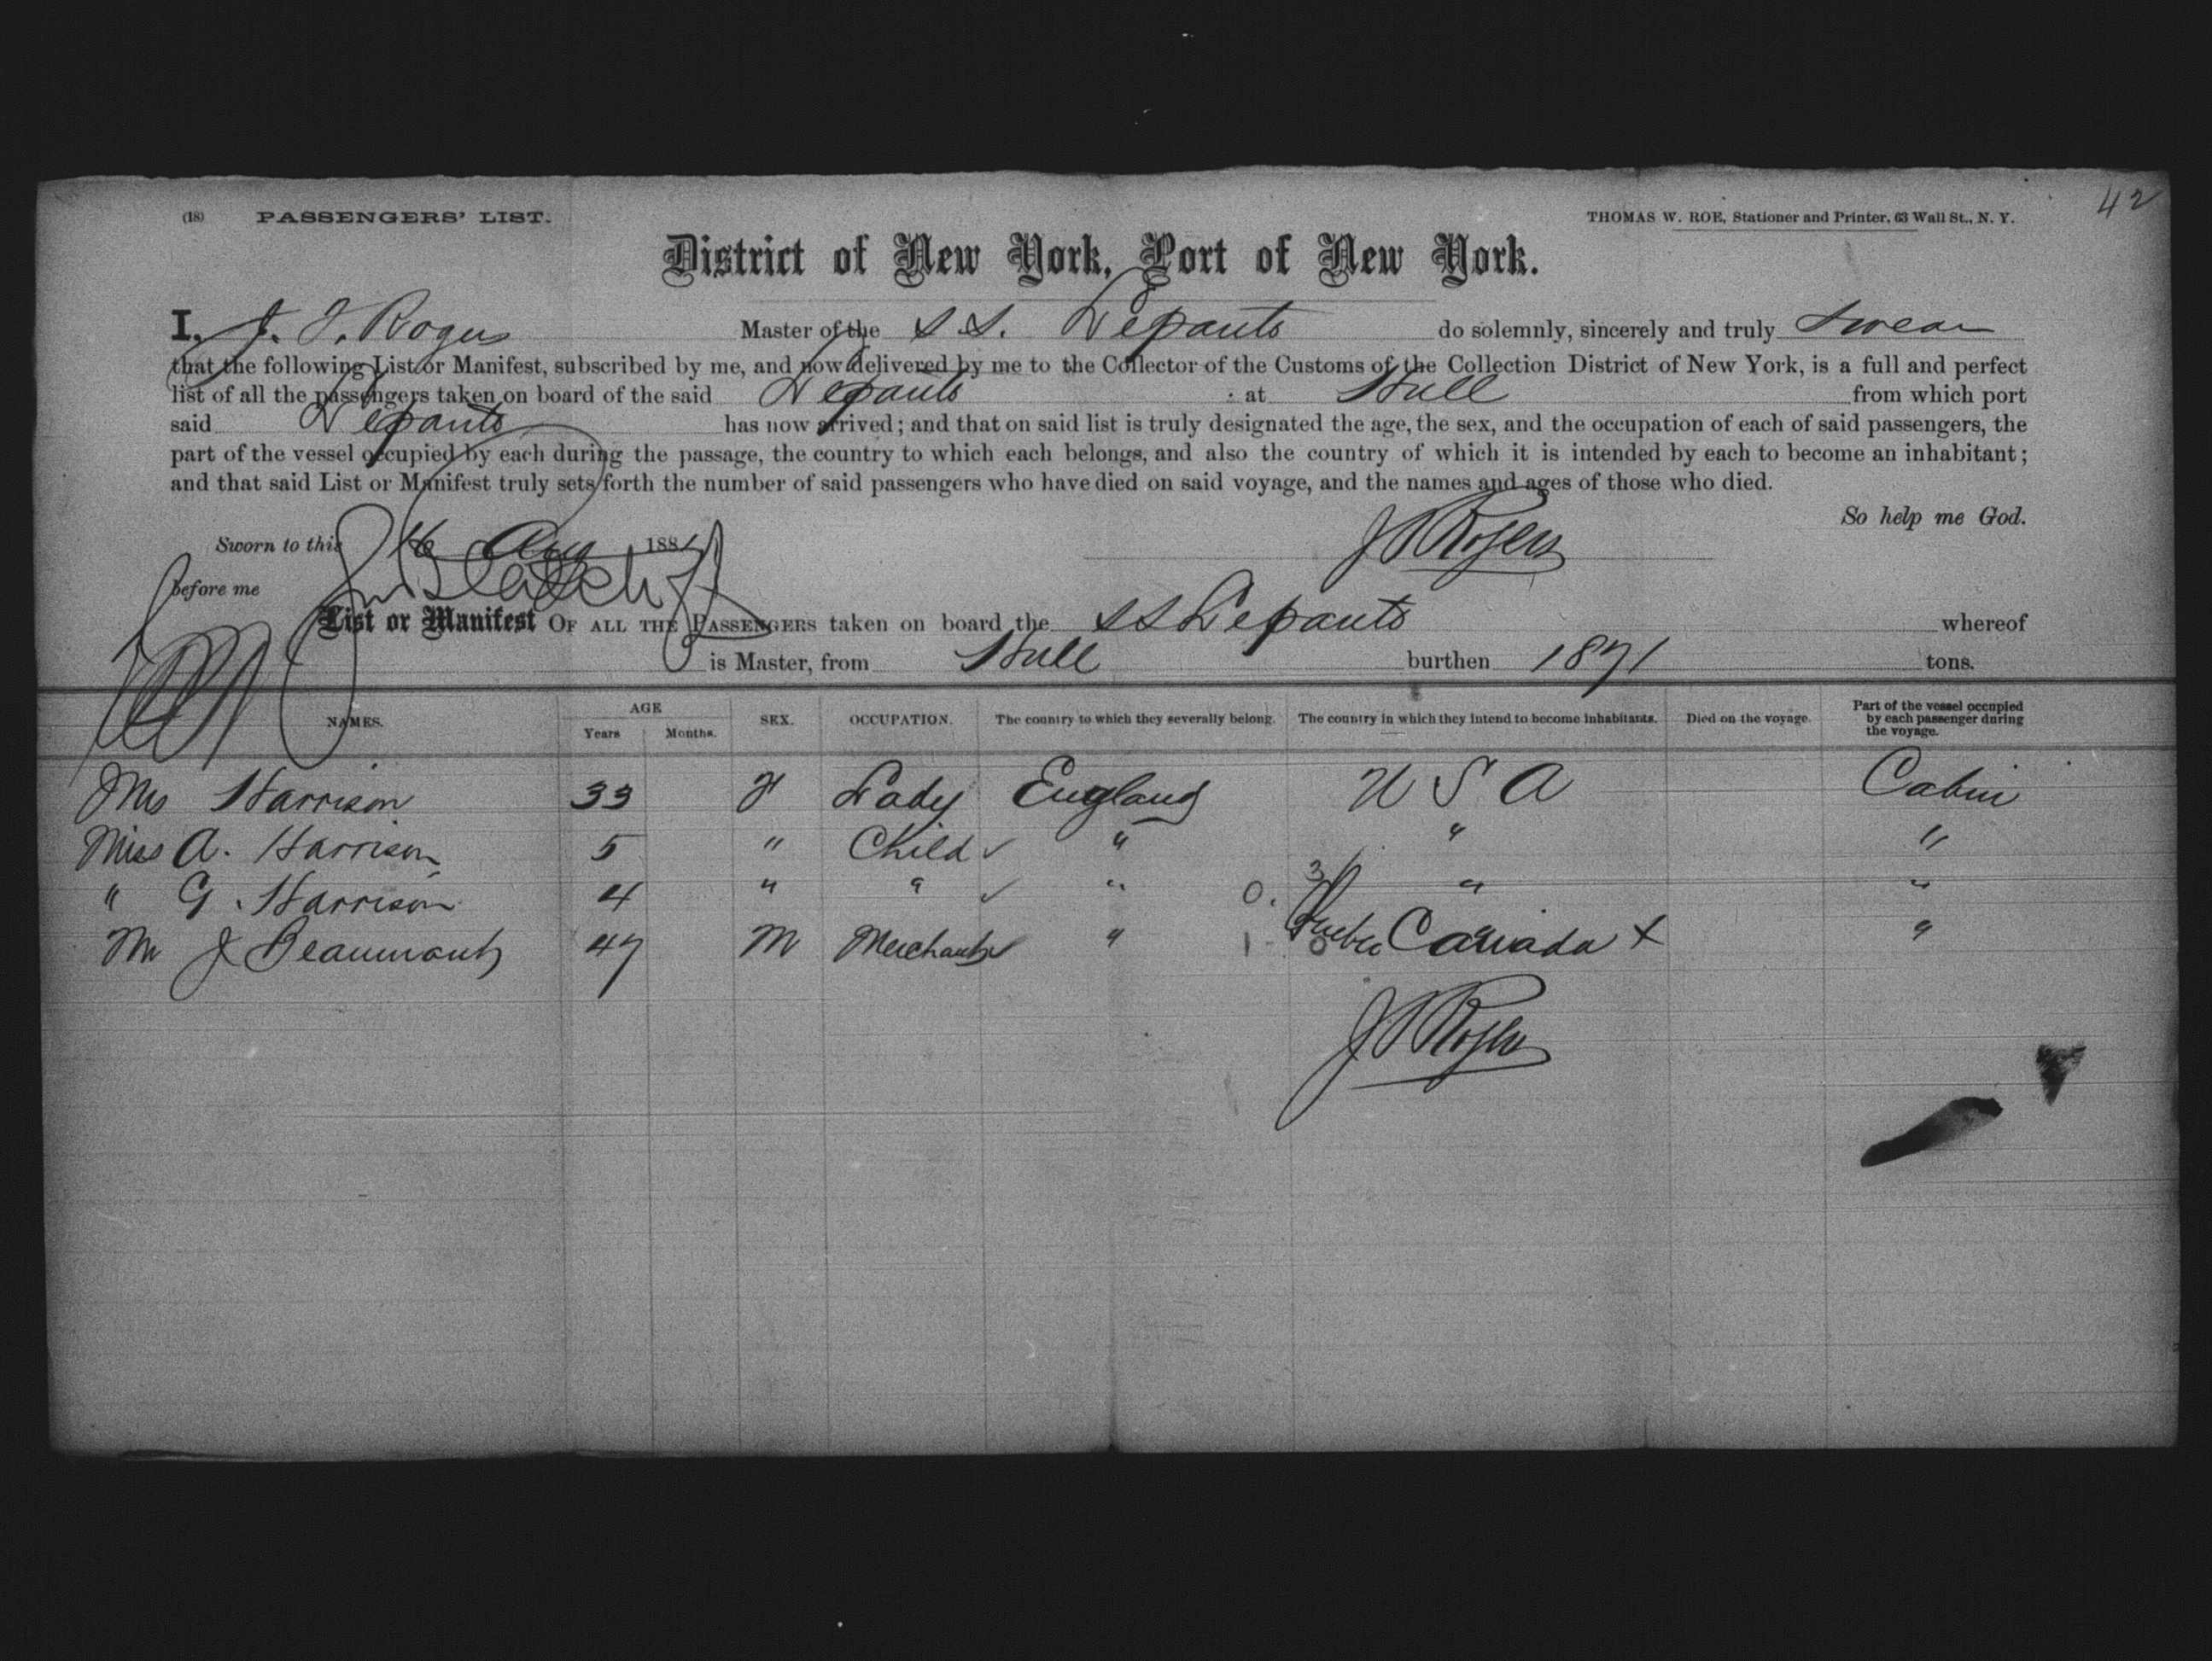 42
(18) PASSENGERS' LIST. THOMAS W. ROE, Stationer and Printer, 63 Wall St., N. Y.
District of New York, Port of New York.
I, J. T. Rogers Master of the S.S. Lepanto do solemnly, sincerely and truly swear
that the following List or Manifest, subscribed by me, and now delivered by me to the Collector of the Customs of the Collection District of New York, is a full and perfect
list of all the passengers taken on board of the said Lepanto at Hull from which port
said Lepanto has now arrived; and that on said list is truly designated the age, the sex, and the occupation of each of said passengers, the
part of the vessel occupied by each during the passage, the country to which each belongs, and also the country of which it is intended by each to become an inhabitant;
and that said List or Manifest truly sets forth the number of said passengers who have died on said voyage, and the names and ages of those who died.
So help me God.
Sworn to this 16 Aug 188 J T Rogers
before me
List or Manifest OF ALL THE PASSENGERS taken on board the SS Lepanto whereof
is Master, from Hull burthen 1871 tons.
NAMES. AGE Years Months. SEX. OCCUPATION. The country to which they severally belong. The country in which they intend to become inhabitants. Died on the voyage. Part of the vessel occupied by each passenger during the voyage.
Mrs Harrison 33 F Lady England U S A Cabin
Miss A. Harrison 5 " Child " " "
" G. Harrison 4 " " " 0. 3 " "
Mr J Beaumont 47 M Merchant " 1 0 Quebec Canada x "
J T Rogers